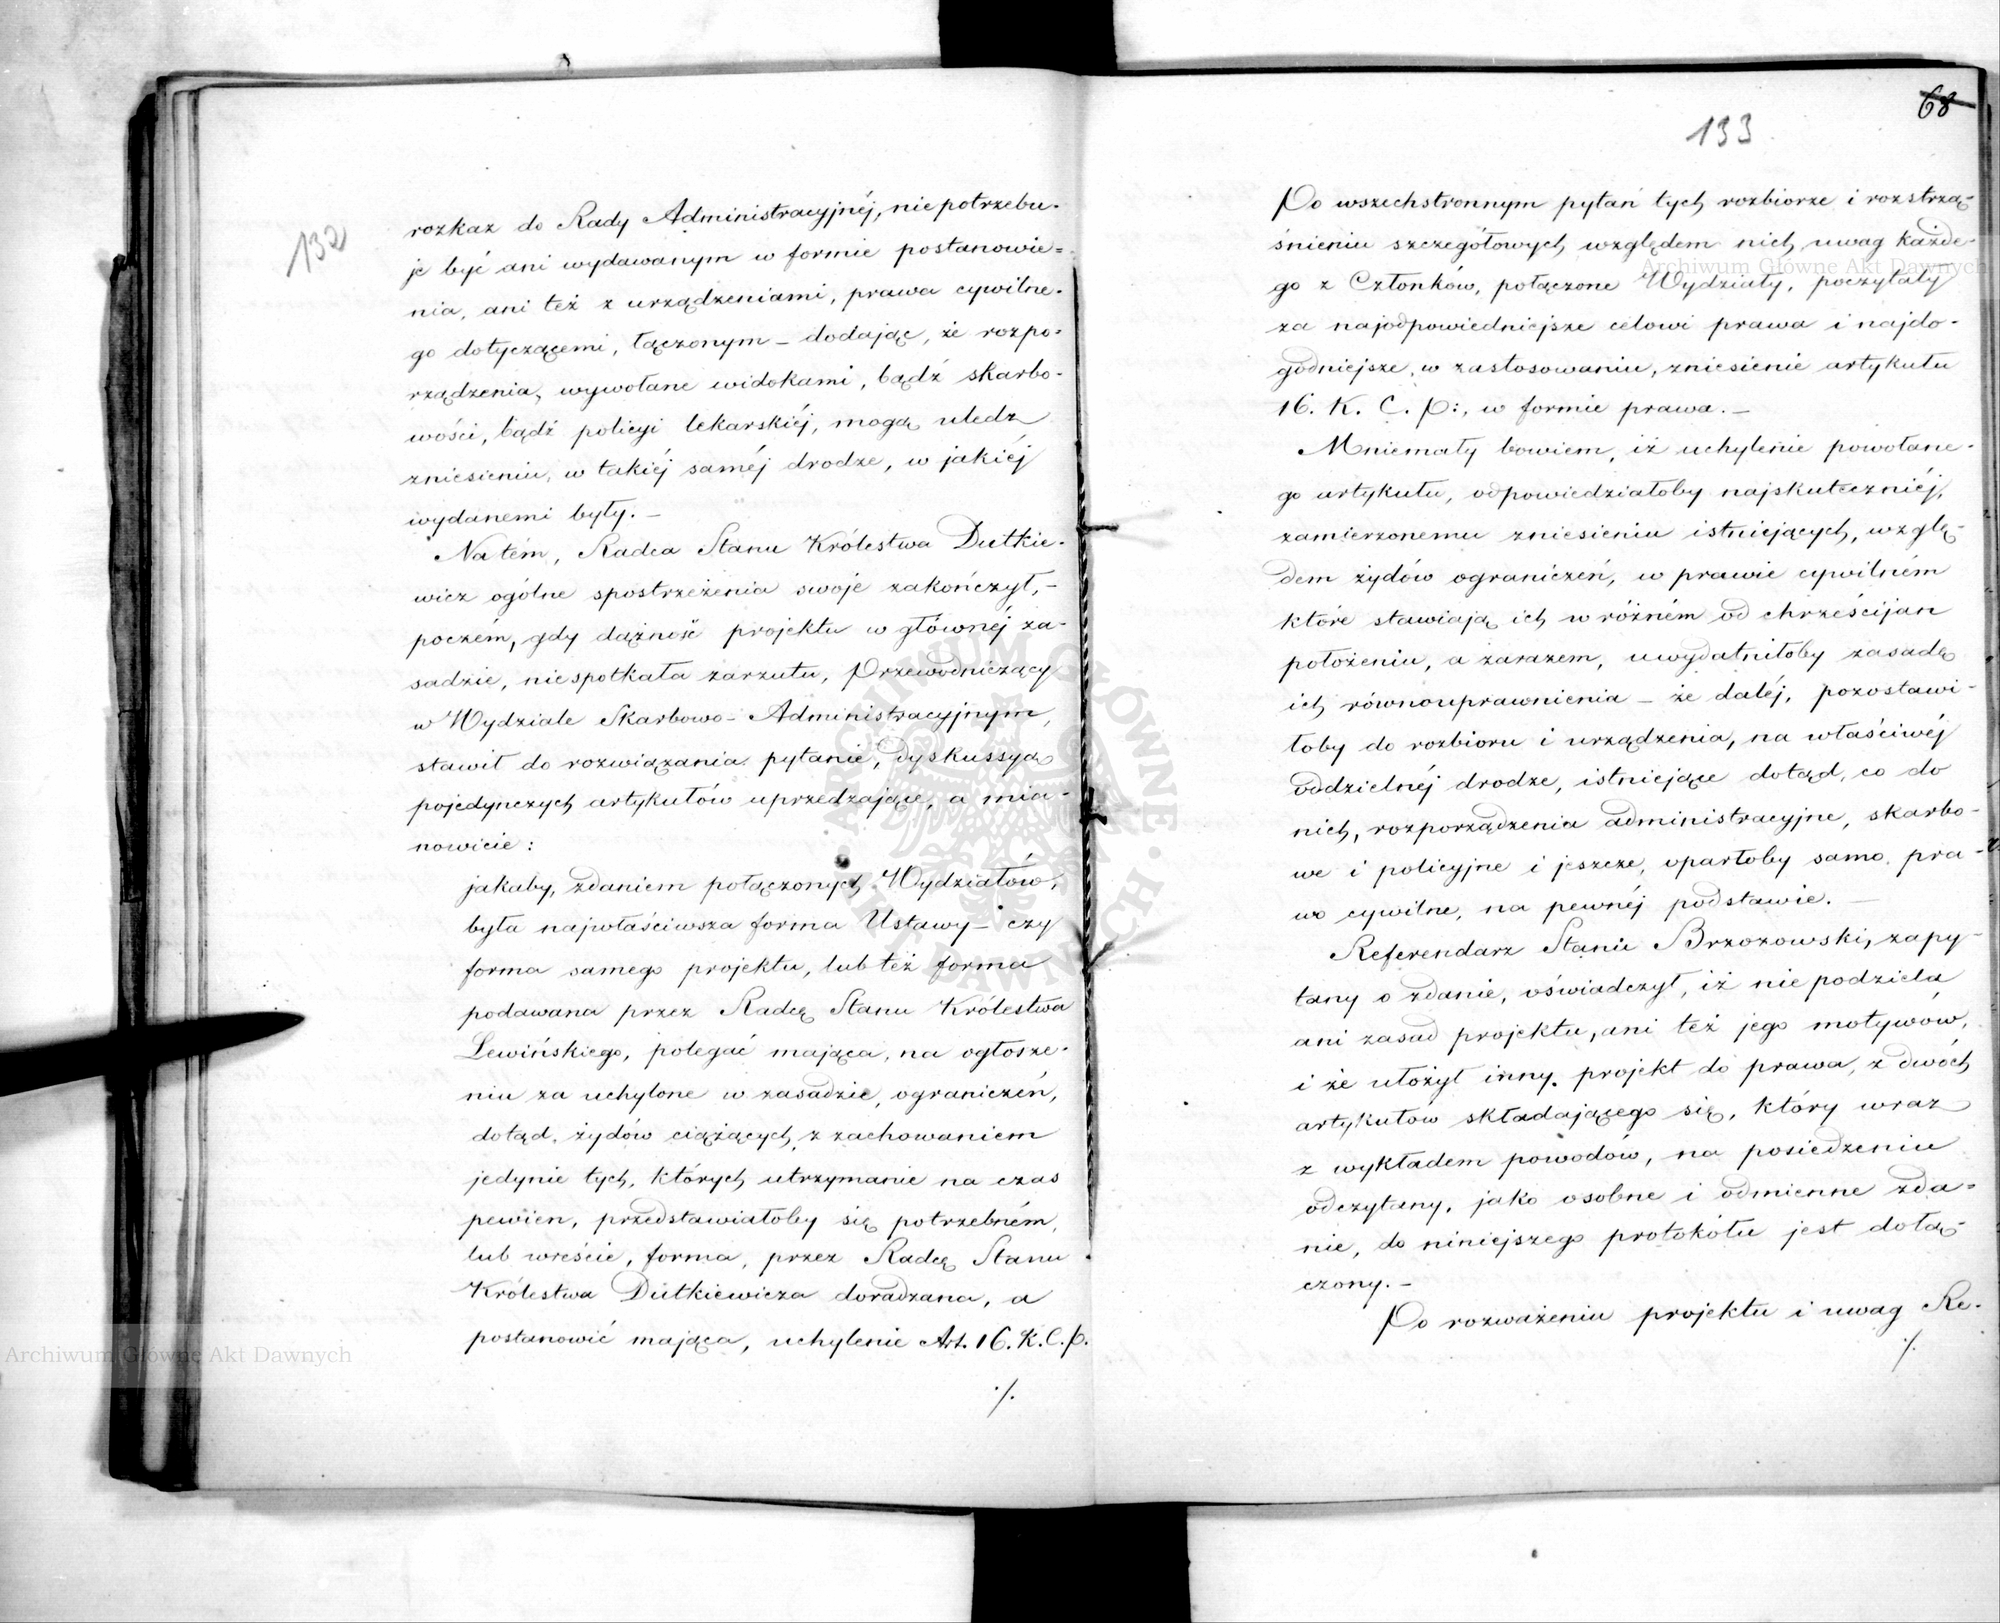 132
rozkaz do Rady Administracyjnéj, niepotrzebu-
je być ani wydawanym w formie postanowie-
nia, ani też z urządzeniami, prawa cywilne-
go dotyczącemi, łączonym – dodając, że rozpo-
rządzenia, wywołane widokami, bądź skarbo-
wości, bądź policyi lekarskiéj, mogą uledz
zniesieniu, w takiéj saméj drodze, w jakiéj
wydanemi były. –
Na tém, Radca Stanu Królestwa Dutkie-
wicz ogólne spostrzeżenia swoje zakończył, –
poczém, gdy dążność projektu w głównéj za-
sadzie, niespotkała zarzutu, Przewodniczący
w Wydziale Skarbowo-Administracyjnym,
stawił do rozwiązania pytanie, dyskussyą
pojedynczych artykułów uprzedzające, a mia-
nowicie:
jakaby, zdaniem połączonych Wydziałów,
była najwłaściwsza forma Ustawy – czy
forma samego projektu, lub też forma
podawana przez Radcę Stanu Królestwa
Lewińskiego, polegać mająca, na ogłosze-
niu za uchylone w zasadzie, ograniczeń,
dotąd, żydów ciążących, z zachowaniem
jedynie tych, których utrzymanie na czas
pewien, przedstawiałoby się potrzebném,
lub wreście, forma, przez Radcę Stanu
Królestwa Dutkiewicza doradzana, a
postanowić mająca, uchylenie Art. 16. K.C.P.
./.
68
133
Po wszechstronnym pytań tych rozbiorze i rozstrzą-
śnieniu szczegółowych względem nich uwag każde-
go z Członków, połączone Wydziały, poczytały
za najodpowiedniejsze celowi prawa i najdo-
godniejsze, w zastosowaniu, zniesienie artykułu
16. K. C. P:, w formie prawa. –
Mniemały bowiem, iż uchylenie powołane-
go artykułu, odpowiedziałoby najskuteczniéj,
zamierzonemu zniesieniu istniejących, wzglę-
dem żydów ograniczeń, w prawie cywilném
które stawiają ich w różném od chrześcijan
położeniu, a zarazem, uwydatniłoby zasadę
ich równouprawnienia – że daléj, pozostawi-
łoby do rozbioru i urządzenia, na właściwéj
oddzielnéj drodze, istniejące dotąd, co do
nich, rozporządzenia administracyjne, skarbo-
we i policyjne i jeszcze, oparłoby samo pra-
wo cywilne, na pewnéj podstawie. –
Referendarz Stanu Brzozowski, zapy-
tany o zdanie, oświadczył, iż nie podziela
ani zasad projektu, ani też jego motywów,
i że ułożył inny projekt do prawa, z dwóch
artykułow składającego się, który wraz
z wykładem powodów, na posiedzeniu
odczytany, jako osobne i odmienne zda-
nie, do niniejszego protokółu jest dołą-
czony. –
Po rozważeniu projektu i uwag Re-
./.
Archiwum Główne Akt Dawnych
Archiwum Główne Akt Dawnych
ARCHIWUM GŁÓWNE AKT DAWNYCH